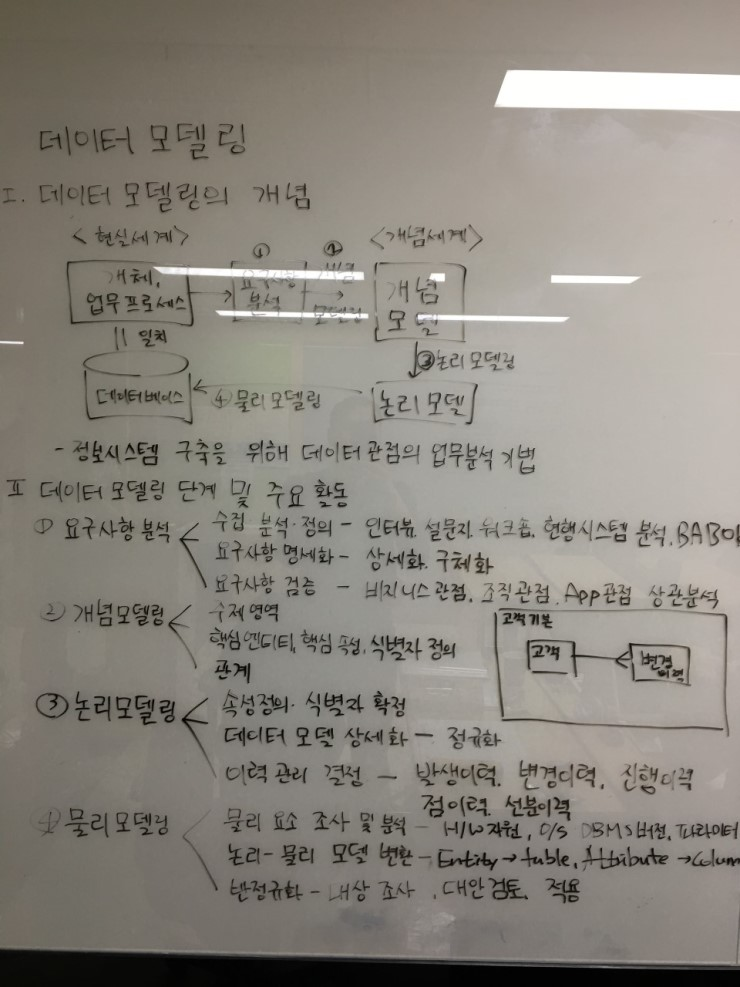 데이터 모델링
I. 데이터 모델링의 개념
<현실세계> ① ② <개념세계>
개체, 업무프로세스
요구사항 분석
개념 모델링
개념 모델
|| 일치
③ 논리 모델링
데이터베이스
④ 물리 모델링
논리 모델
- 정보시스템 구축을 위해 데이터 관점의 업무분석 기법
II 데이터 모델링 단계 및 주요 활동
① 요구사항 분석 < 수집 분석·정의 - 인터뷰, 설문지, 워크숍, 현행시스템 분석, BABOK
요구사항 명세화 - 상세화, 구체화
요구사항 검증 - 비지니스관점, 조직관점, App관점 상관분석
② 개념모델링 < 주제영역
핵심엔티티, 핵심 속성, 식별자 정의
관계
고객기본
고객
변경이력
③ 논리모델링 < 속성정의· 식별자 확정
데이터 모델 상세화 - 정규화
이력 관리 결정 - 발생이력, 변경이력, 진행이력
점이력, 선분이력
④ 물리모델링 < 물리 요소 조사 및 분석 - H/W자원, O/S DBMS버전, 파라미터
논리-물리 모델 변환 - Entity → table, Attribute → Colum
반정규화 - 대상 조사, 대안검토, 적용